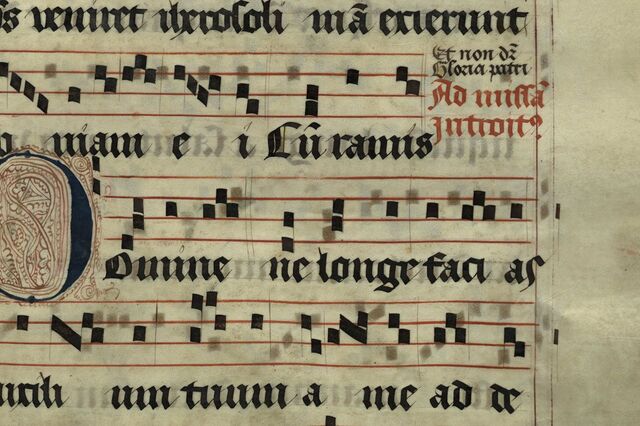 veniret iherosoli mā exierunt
Et non dr̄
Gloria patri
Ad missā
Introit⁹
quiam e i Cū ramis
Domine ne longe faci as
auxili um tuum a me ad de